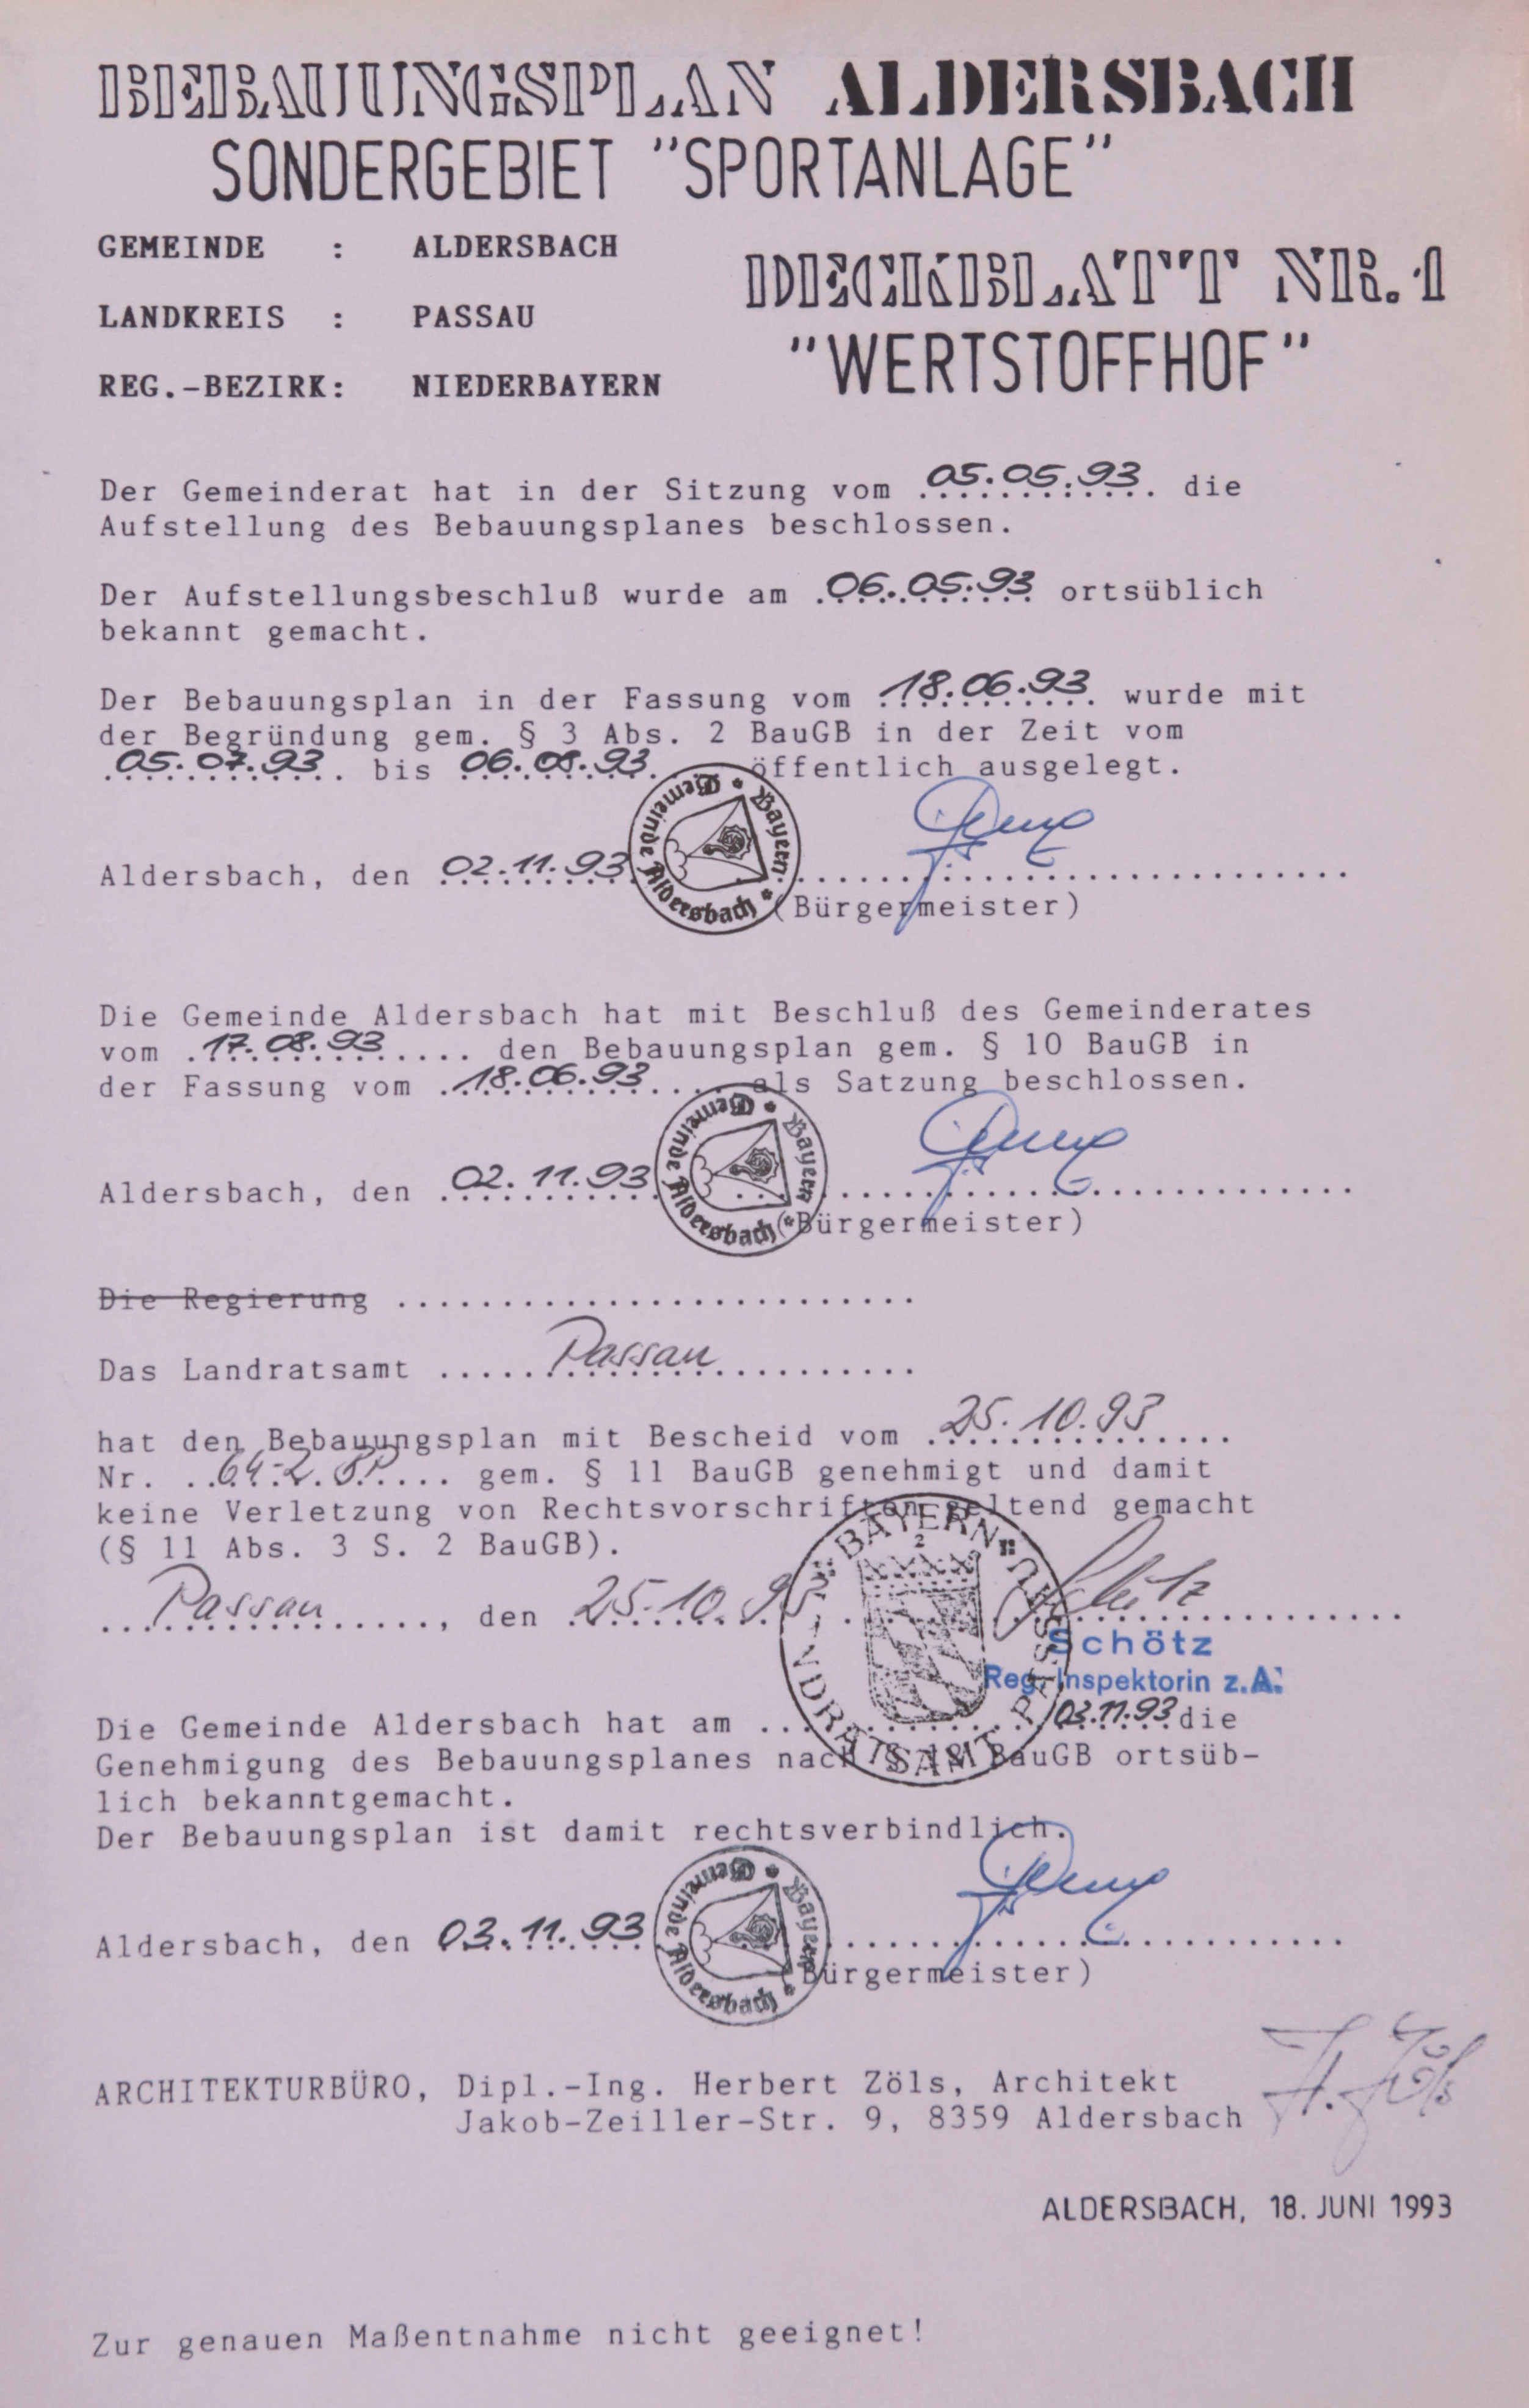 BEBAUUNGSPLAN ALDERSBACH
SONDERGEBIET "SPORTANLAGE"
GEMEINDE : ALDERSBACH
LANDKREIS : PASSAU
REG.-BEZIRK: NIEDERBAYERN
DECKBLATT NR. 1
"WERTSTOFFHOF"
Der Gemeinderat hat in der Sitzung vom 05.05.93 die
Aufstellung des Bebauungsplanes beschlossen.
Der Aufstellungsbeschluß wurde am 06.05.93 ortsüblich
bekannt gemacht.
Der Bebauungsplan in der Fassung vom 18.06.93 wurde mit
der Begründung gem. § 3 Abs. 2 BauGB in der Zeit vom
05.07.93 bis 06.08.93 öffentlich ausgelegt.
Gemeinde Aldersbach * Bayern *
Aldersbach, den 02.11.93
(Bürgermeister)
Die Gemeinde Aldersbach hat mit Beschluß des Gemeinderates
vom 17.08.93 den Bebauungsplan gem. § 10 BauGB in
der Fassung vom 18.06.93 als Satzung beschlossen.
Gemeinde Aldersbach * Bayern *
Aldersbach, den 02.11.93
(Bürgermeister)
Die Regierung
Das Landratsamt Passau
hat den Bebauungsplan mit Bescheid vom 25.10.93
Nr. gem. § 11 BauGB genehmigt und damit
keine Verletzung von Rechtsvorschriften geltend gemacht
(§ 11 Abs. 3 S. 2 BauGB).
BAYERN LANDRATSAMT PASSAU 2
Passau, den 25.10.93
Schötz
Reg.Inspektorin z.A.
Die Gemeinde Aldersbach hat am 03.11.93 die
Genehmigung des Bebauungsplanes nach § BauGB ortsüb-
lich bekanntgemacht.
Der Bebauungsplan ist damit rechtsverbindlich.
Gemeinde Aldersbach * Bayern *
Aldersbach, den 03.11.93
(Bürgermeister)
ARCHITEKTURBÜRO, Dipl.-Ing. Herbert Zöls, Architekt
Jakob-Zeiller-Str. 9, 8359 Aldersbach
H. Zöls
ALDERSBACH, 18. JUNI 1993
Zur genauen Maßentnahme nicht geeignet!